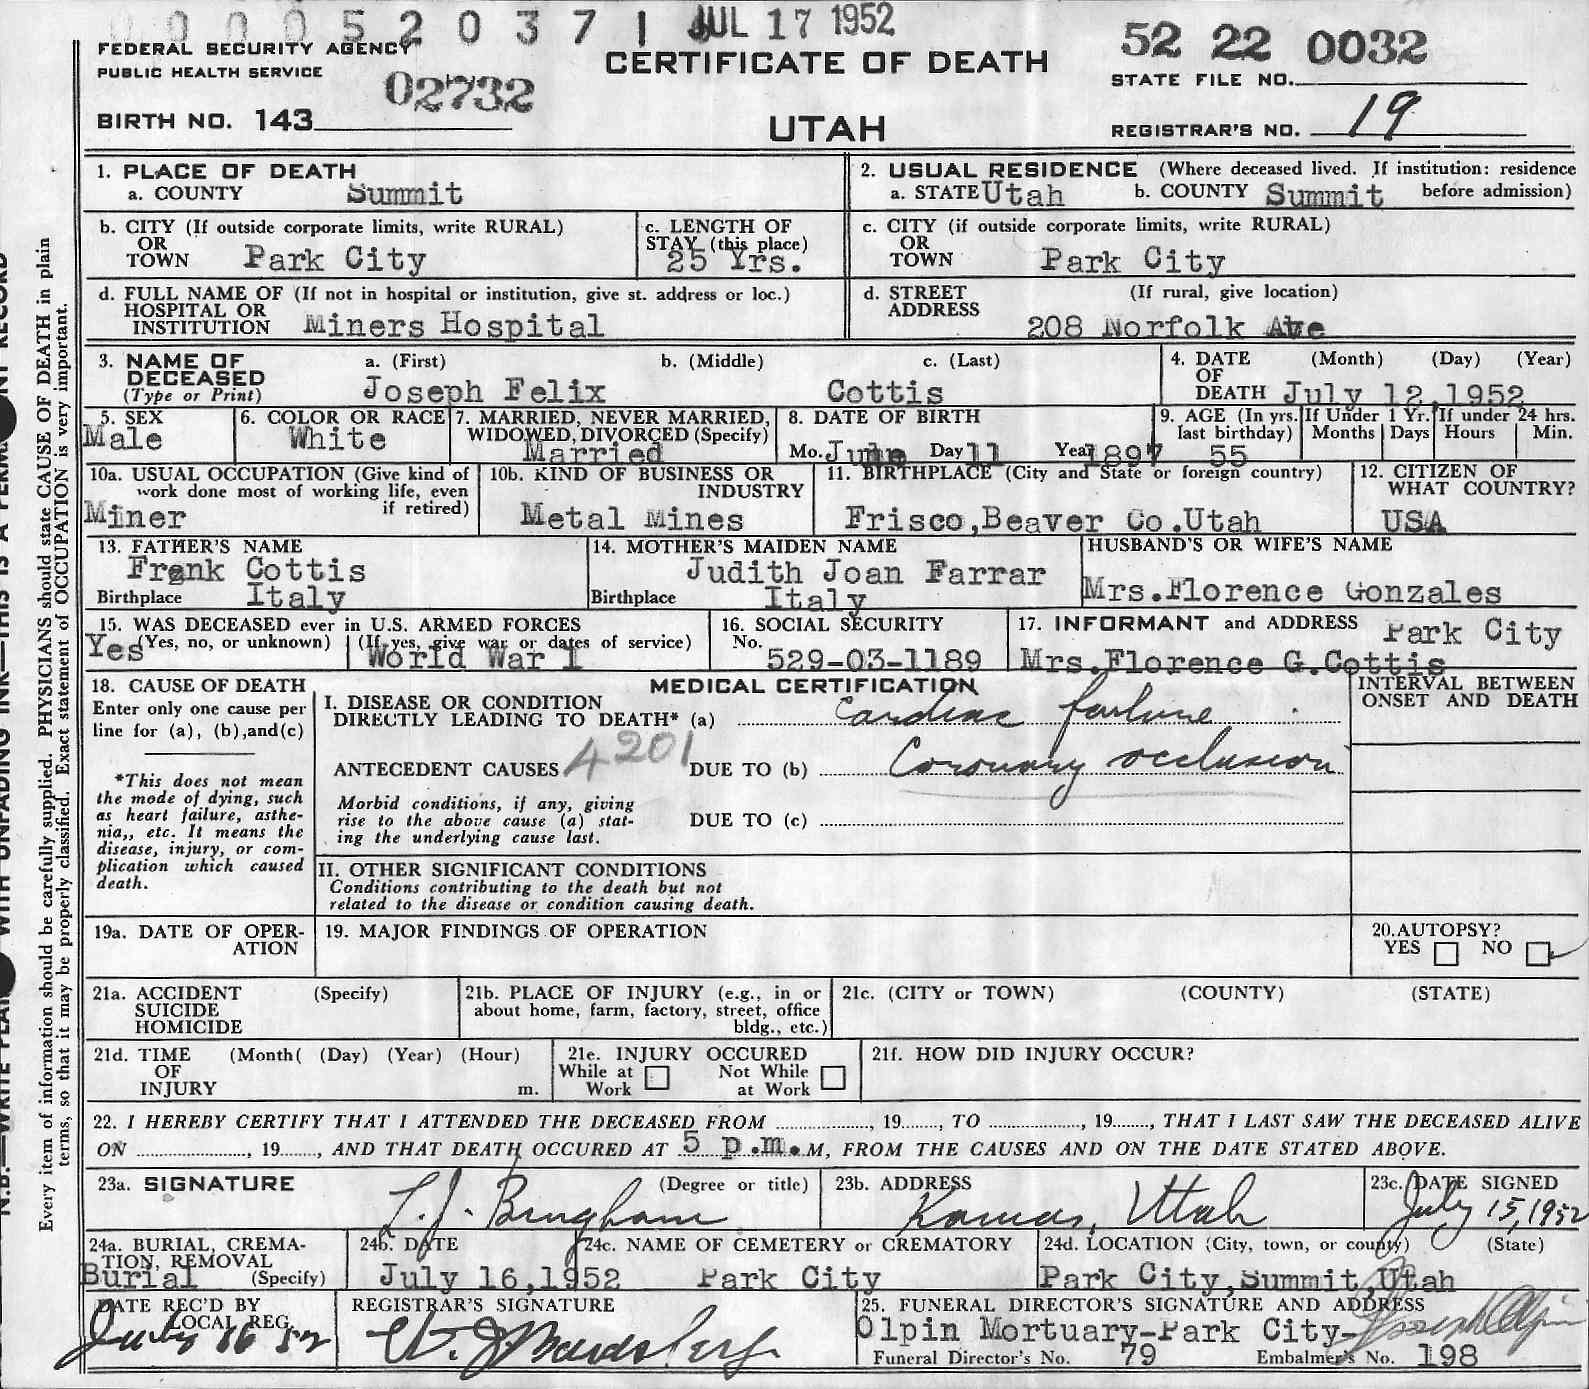 0 0 0 5 2 0 3 7 1 JUL 17 1952
FEDERAL SECURITY AGENCY
PUBLIC HEALTH SERVICE
02732
BIRTH NO. 143
CERTIFICATE OF DEATH
UTAH
52 22 0032
STATE FILE NO.
REGISTRAR'S NO. 19
1. PLACE OF DEATH
a. COUNTY Summit
2. USUAL RESIDENCE (Where deceased lived. If institution: residence before admission)
a. STATE Utah b. COUNTY Summit
b. CITY (If outside corporate limits, write RURAL)
OR
TOWN Park City
c. LENGTH OF
STAY (this place)
25 Yrs.
c. CITY (if outside corporate limits, write RURAL)
OR
TOWN Park City
d. FULL NAME OF (If not in hospital or institution, give st. address or loc.)
HOSPITAL OR
INSTITUTION Miners Hospital
d. STREET (If rural, give location)
ADDRESS
208 Norfolk Ave
3. NAME OF a. (First) b. (Middle) c. (Last)
DECEASED
(Type or Print) Joseph Felix Cottis
4. DATE (Month) (Day) (Year)
OF
DEATH July 12,1952
5. SEX
Male
6. COLOR OR RACE
White
7. MARRIED, NEVER MARRIED,
WIDOWED, DIVORCED (Specify)
Married
8. DATE OF BIRTH
Mo. June Day 11 Year 1897
9. AGE (In yrs. last birthday) 55
If Under 1 Yr. Months Days
If under 24 hrs. Hours Min.
10a. USUAL OCCUPATION (Give kind of
work done most of working life, even
if retired)
Miner
10b. KIND OF BUSINESS OR
INDUSTRY
Metal Mines
11. BIRTHPLACE (City and State or foreign country)
Frisco,Beaver Co.Utah
12. CITIZEN OF
WHAT COUNTRY?
USA
13. FATHER'S NAME
Frank Cottis
Birthplace Italy
14. MOTHER'S MAIDEN NAME
Judith Joan Farrar
Birthplace Italy
HUSBAND'S OR WIFE'S NAME
Mrs.Florence Gonzales
15. WAS DECEASED ever in U.S. ARMED FORCES
Yes (Yes, no, or unknown) (If yes, give war or dates of service)
World War I
16. SOCIAL SECURITY
No. 529-03-1189
17. INFORMANT and ADDRESS Park City
Mrs.Florence G.Cottis
18. CAUSE OF DEATH
Enter only one cause per
line for (a), (b),and(c)
*This does not mean
the mode of dying, such
as heart failure, asthe-
nia,, etc. It means the
disease, injury, or com-
plication which caused
death.
MEDICAL CERTIFICATION
INTERVAL BETWEEN
ONSET AND DEATH
I. DISEASE OR CONDITION
DIRECTLY LEADING TO DEATH* (a) Cardiac failure
ANTECEDENT CAUSES 4201 DUE TO (b) Coronary occlusion
Morbid conditions, if any, giving
rise to the above cause (a) stat-
ing the underlying cause last.
DUE TO (c)
II. OTHER SIGNIFICANT CONDITIONS
Conditions contributing to the death but not
related to the disease or condition causing death.
19a. DATE OF OPER-
ATION
19. MAJOR FINDINGS OF OPERATION
20.AUTOPSY?
YES NO
21a. ACCIDENT (Specify)
SUICIDE
HOMICIDE
21b. PLACE OF INJURY (e.g., in or
about home, farm, factory, street, office
bldg., etc.)
21c. (CITY or TOWN) (COUNTY) (STATE)
21d. TIME (Month( (Day) (Year) (Hour)
OF
INJURY m.
21e. INJURY OCCURED
While at Work Not While at Work
21f. HOW DID INJURY OCCUR?
22. I HEREBY CERTIFY THAT I ATTENDED THE DECEASED FROM , 19 , TO , 19 , THAT I LAST SAW THE DECEASED ALIVE
ON , 19 , AND THAT DEATH OCCURED AT 5 p.m.M, FROM THE CAUSES AND ON THE DATE STATED ABOVE.
23a. SIGNATURE (Degree or title)
L. J. Bingham
23b. ADDRESS
Kamas, Utah
23c. DATE SIGNED
July 15, 1952
24a. BURIAL, CREMA-
TION, REMOVAL
Burial (Specify)
24b. DATE
July 16,1952
24c. NAME OF CEMETERY or CREMATORY
Park City
24d. LOCATION (City, town, or county) (State)
Park City,Summit,Utah
DATE REC'D BY
LOCAL REG.
July 16 52
REGISTRAR'S SIGNATURE
25. FUNERAL DIRECTOR'S SIGNATURE AND ADDRESS
Olpin Mortuary-Park City-
Funeral Director's No. 79 Embalmer's No. 198
Every item of information should be carefully supplied. PHYSICIANS should state CAUSE OF DEATH in plain
terms, so that it may be properly classified. Exact statement of OCCUPATION is very important.